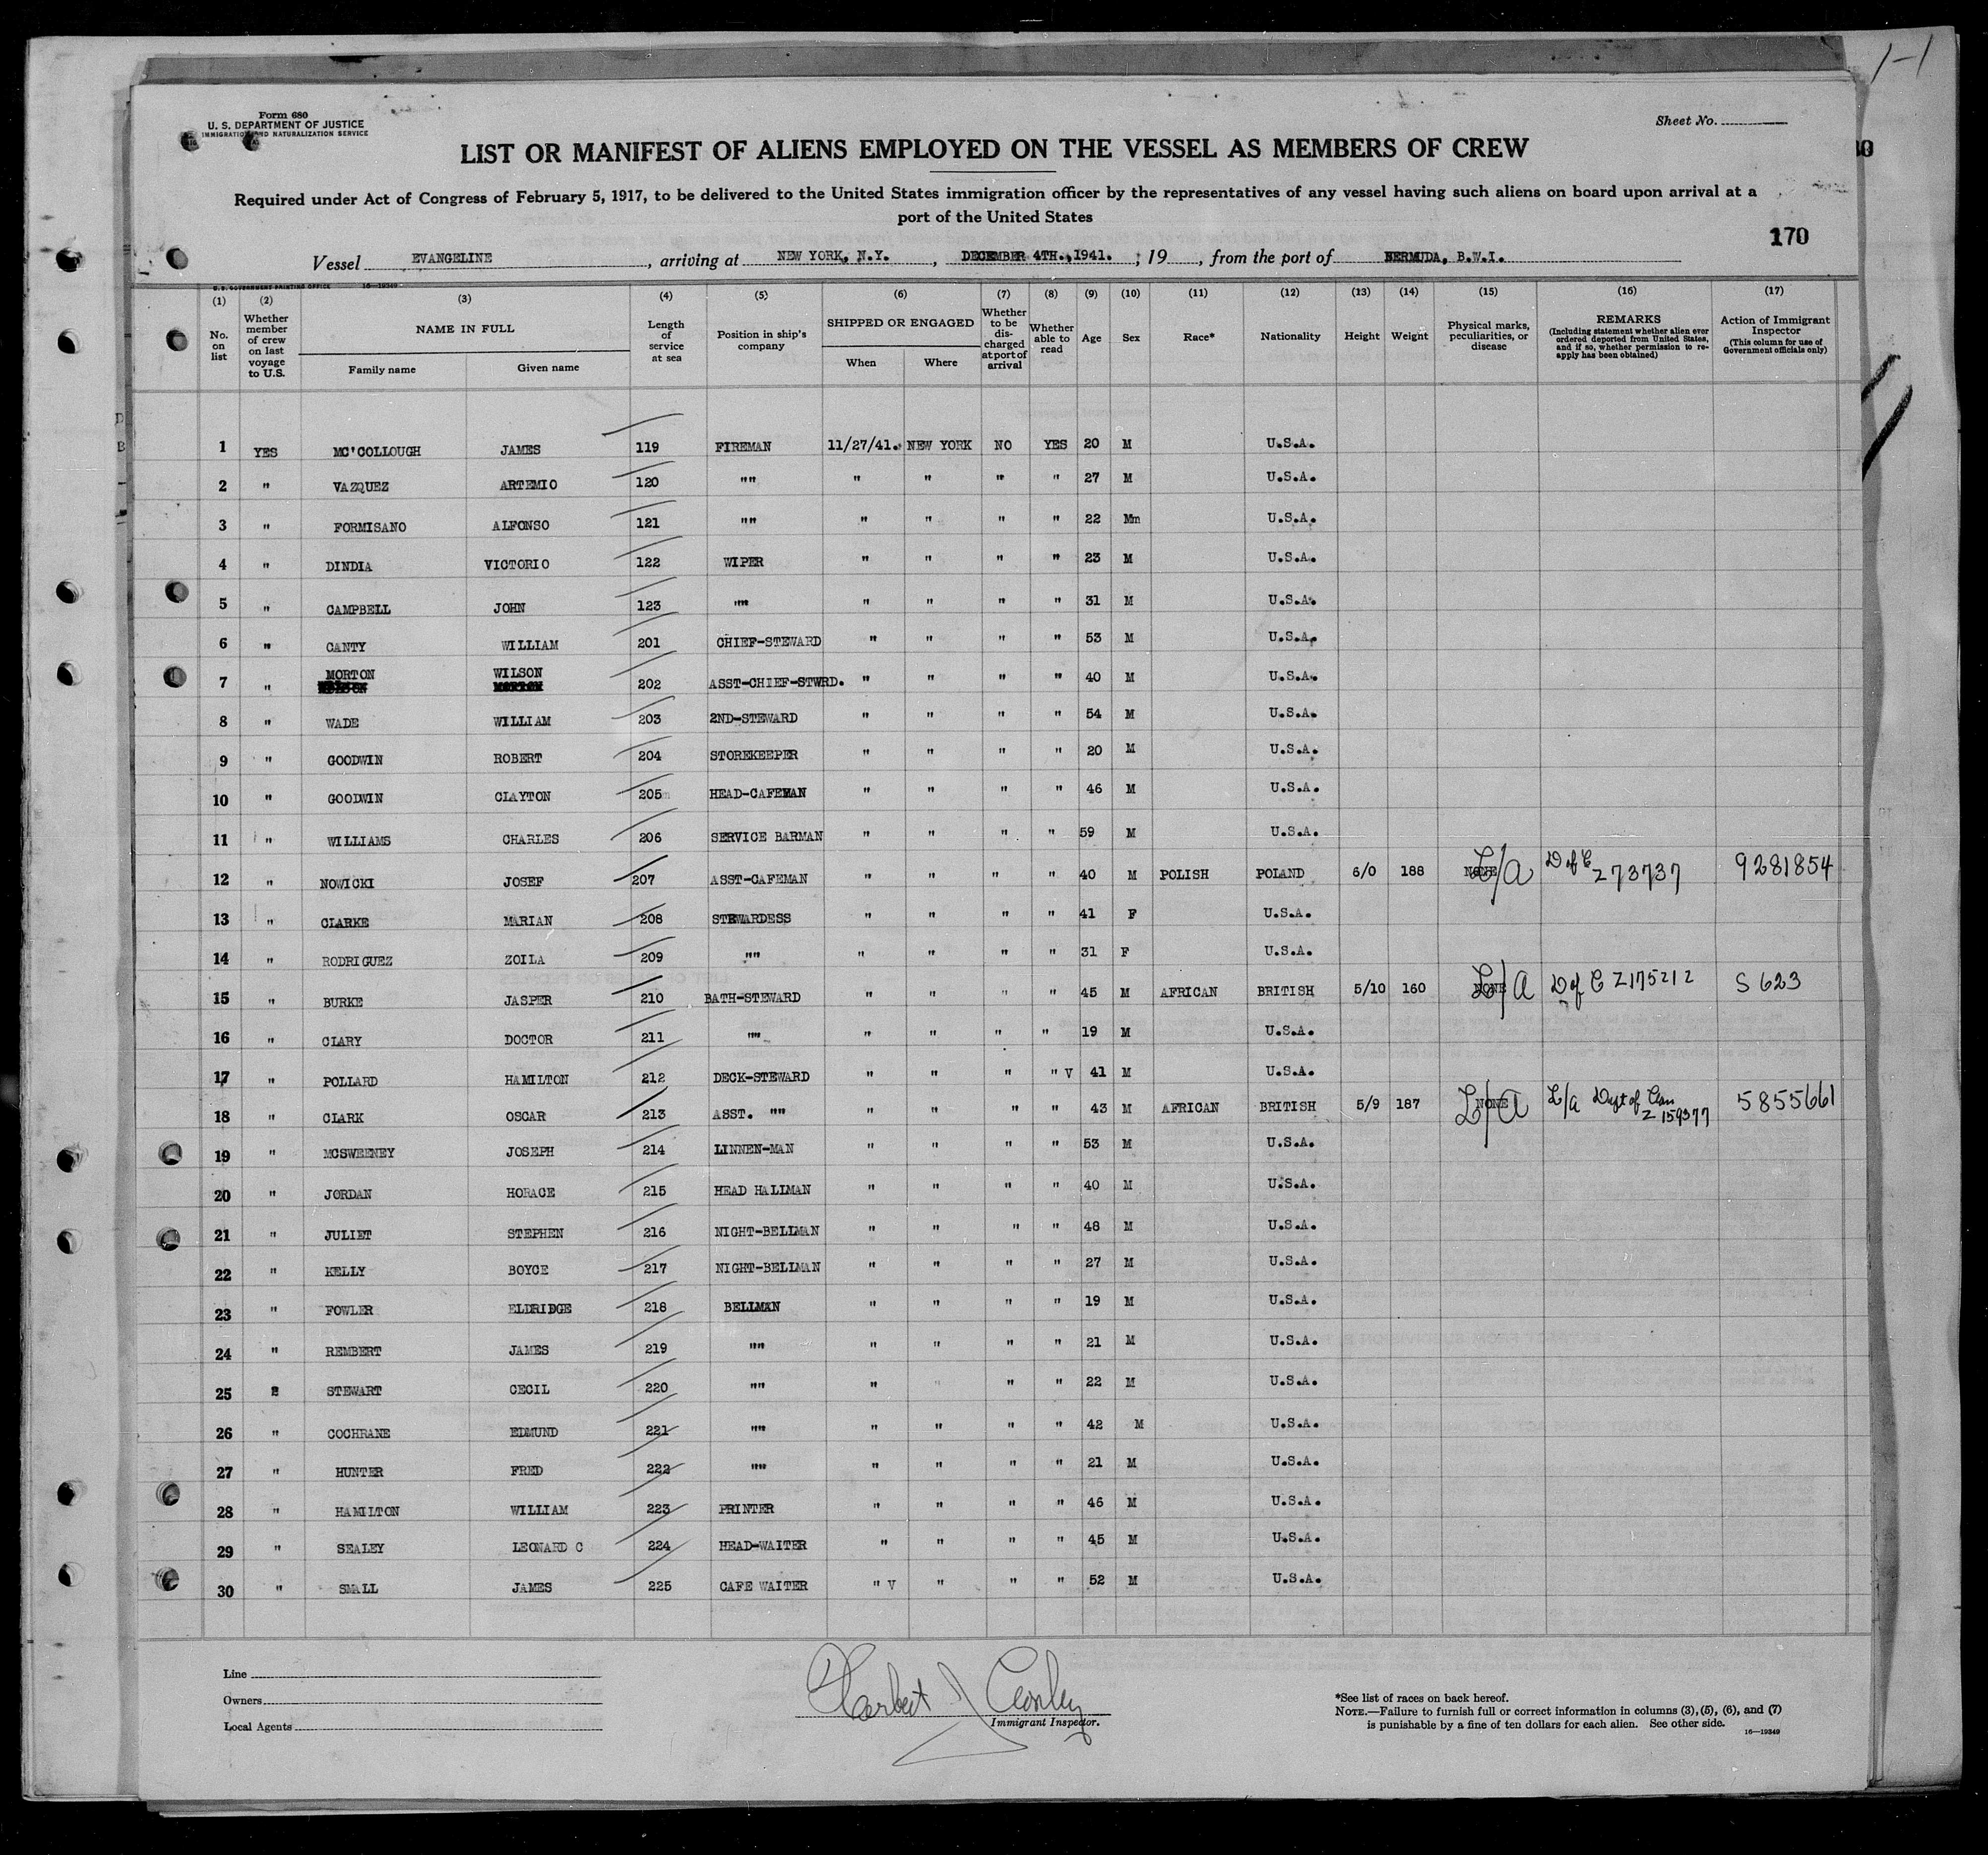 1-1
Form 680
U. S. DEPARTMENT OF JUSTICE
IMMIGRATION AND NATURALIZATION SERVICE
Sheet No.
LIST OR MANIFEST OF ALIENS EMPLOYED ON THE VESSEL AS MEMBERS OF CREW
Required under Act of Congress of February 5, 1917, to be delivered to the United States immigration officer by the representatives of any vessel having such aliens on board upon arrival at a
port of the United States
170
Vessel EVANGELINE, arriving at NEW YORK, N.Y., DECEMBER 4TH.,1941. ; 19, from the port of BERMUDA, B.W.I.
U. S. GOVERNMENT PRINTING OFFICE 16—19349
(1) (2) (3) (4) (5) (6) (7) (8) (9) (10) (11) (12) (13) (14) (15) (16) (17)
No. on list
Whether member of crew on last voyage to U.S.
NAME IN FULL
Family name Given name
Length of service at sea
Position in ship's company
SHIPPED OR ENGAGED
When Where
Whether to be discharged at port of arrival
Whether able to read
Age Sex Race* Nationality Height Weight
Physical marks, peculiarities, or disease
REMARKS
(Including statement whether alien ever ordered deported from United States, and if so, whether permission to re-apply has been obtained)
Action of Immigrant Inspector
(This column for use of Government officials only)
1 YES MC'COLLOUGH JAMES 119 FIREMAN 11/27/41. NEW YORK NO YES 20 M U.S.A.
2 " VAZQUEZ ARTEMIO 120 "" " " " " 27 M U.S.A.
3 " FORMISANO ALFONSO 121 "" " " " " 22 Mm U.S.A.
4 " DINDIA VICTORIO 122 WIPER " " " " 23 M U.S.A.
5 " CAMPBELL JOHN 123 "" " " " " 31 M U.S.A.
6 " CANTY WILLIAM 201 CHIEF-STEWARD " " " " 53 M U.S.A.
7 " MORTON WILSON 202 ASST-CHIEF-STWRD. " " " " 40 M U.S.A.
8 " WADE WILLIAM 203 2ND-STEWARD " " " " 54 M U.S.A.
9 " GOODWIN ROBERT 204 STOREKEEPER " " " " 20 M U.S.A.
10 " GOODWIN CLAYTON 205 HEAD-CAFEMAN " " " " 46 M U.S.A.
11 " WILLIAMS CHARLES 206 SERVICE BARMAN " " " " 59 M U.S.A.
12 " NOWICKI JOSEF 207 ASST-CAFEMAN " " " " 40 M POLISH POLAND 6/0 188 NONE L/a D of C Z 73737 9281854
13 " CLARKE MARIAN 208 STEWARDESS " " " " 41 F U.S.A.
14 " RODRIGUEZ ZOILA 209 "" " " " " 31 F U.S.A.
15 " BURKE JASPER 210 BATH-STEWARD " " " " 45 M AFRICAN BRITISH 5/10 160 NONE L/a D of C Z175212 S 623
16 " CLARY DOCTOR 211 "" " " " " 19 M U.S.A.
17 " POLLARD HAMILTON 212 DECK-STEWARD " " " " V 41 M U.S.A.
18 " CLARK OSCAR 213 ASST. "" " " " " 43 M AFRICAN BRITISH 5/9 187 NONE L/a L/a Dept of Com Z 159377 5855661
19 " MCSWEENEY JOSEPH 214 LINNEN-MAN " " " " 53 M U.S.A.
20 " JORDAN HORACE 215 HEAD HALLMAN " " " " 40 M U.S.A.
21 " JULIET STEPHEN 216 NIGHT-BELLMAN " " " " 48 M U.S.A.
22 " KELLY BOYCE 217 NIGHT-BELLMAN " " " " 27 M U.S.A.
23 " FOWLER ELDRIDGE 218 BELLMAN " " " " 19 M U.S.A.
24 " REMBERT JAMES 219 "" " " " " 21 M U.S.A.
25 STEWART CECIL 220 "" " " " " 22 M U.S.A.
26 " COCHRANE EDMUND 221 "" " " " " 42 M U.S.A.
27 " HUNTER FRED 222 "" " " " " 21 M U.S.A.
28 " HAMILTON WILLIAM 223 PRINTER " " " " 46 M U.S.A.
29 " SEALEY LEONARD C 224 HEAD-WAITER " " " " 45 M U.S.A.
30 " SMALL JAMES 225 CAFE WAITER " V " " " 52 M U.S.A.
Line
Owners
Local Agents
Herbert J Conley
Immigrant Inspector.
*See list of races on back hereof.
NOTE.—Failure to furnish full or correct information in columns (3), (5), (6), and (7)
is punishable by a fine of ten dollars for each alien. See other side.
16—19349